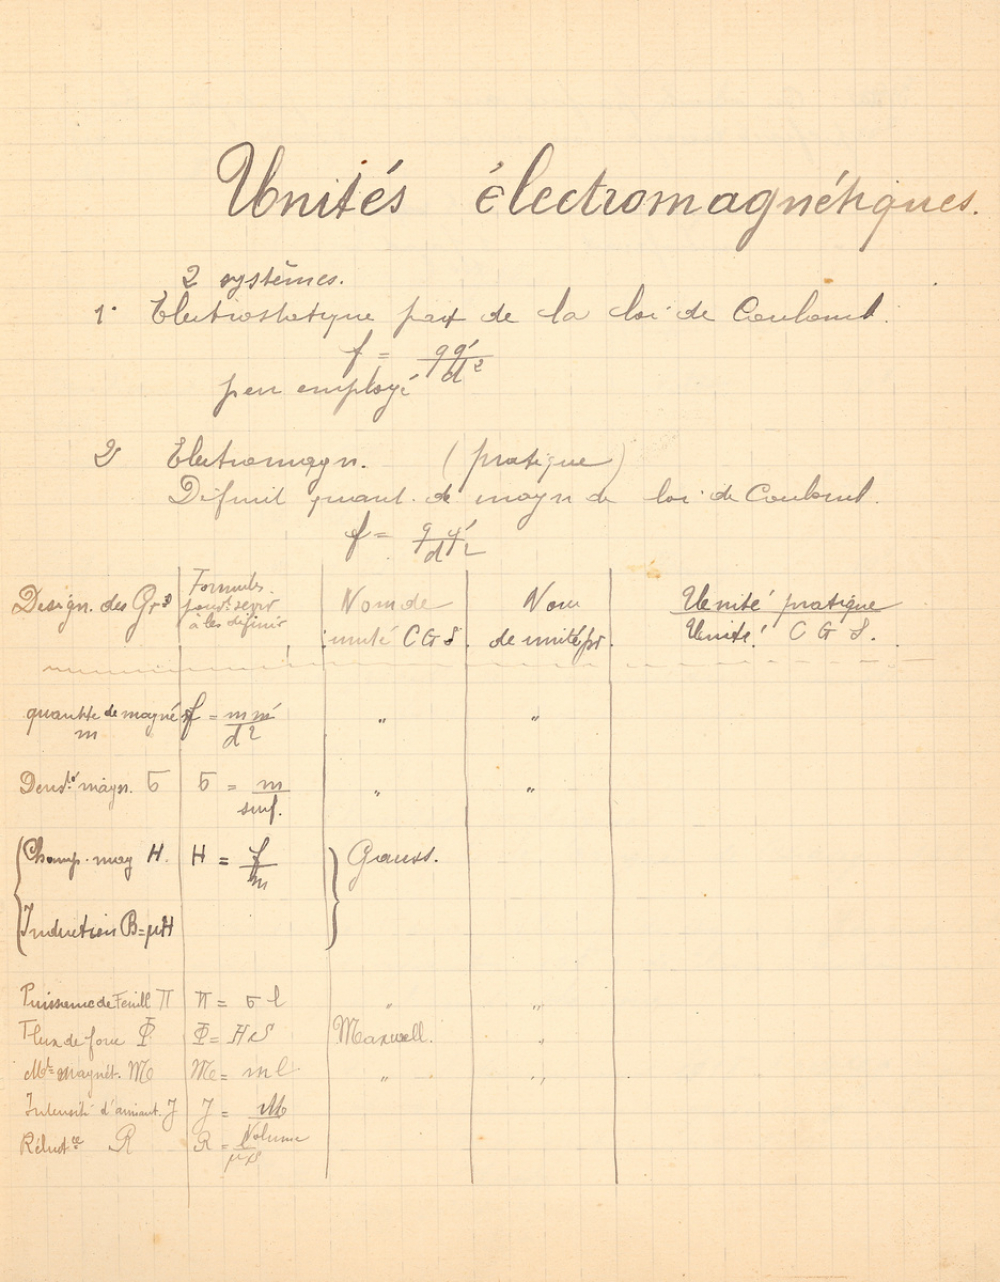 Unités électromagnétiques.
2 systèmes.
1° Electrostatique part de la loi de Coulomb.
f = qq'/d²
peu employé
2° Electromagn. (pratique)
Définit quant. de magn de loi de Coulomb.
f = qq'/d²
Design. des Grs Formules pouvt servir à les définir Nom de unité C G S. Nom de unité pr. Unité pratique / Unité C G S.
quantité de magnét m f = m m'/d² " "
Densté magn. σ σ = m/surf. " "
Champ. mag H. H = f/m Gauss.
Induction B=μH
Puissance de Feuill π π = σ l " "
Flux de force Φ Φ = H S Maxwell. "
Mt magnét. M M = m l " "
Intensité d'aimant. J J = M/Volume
Réluctce R R = l/μS